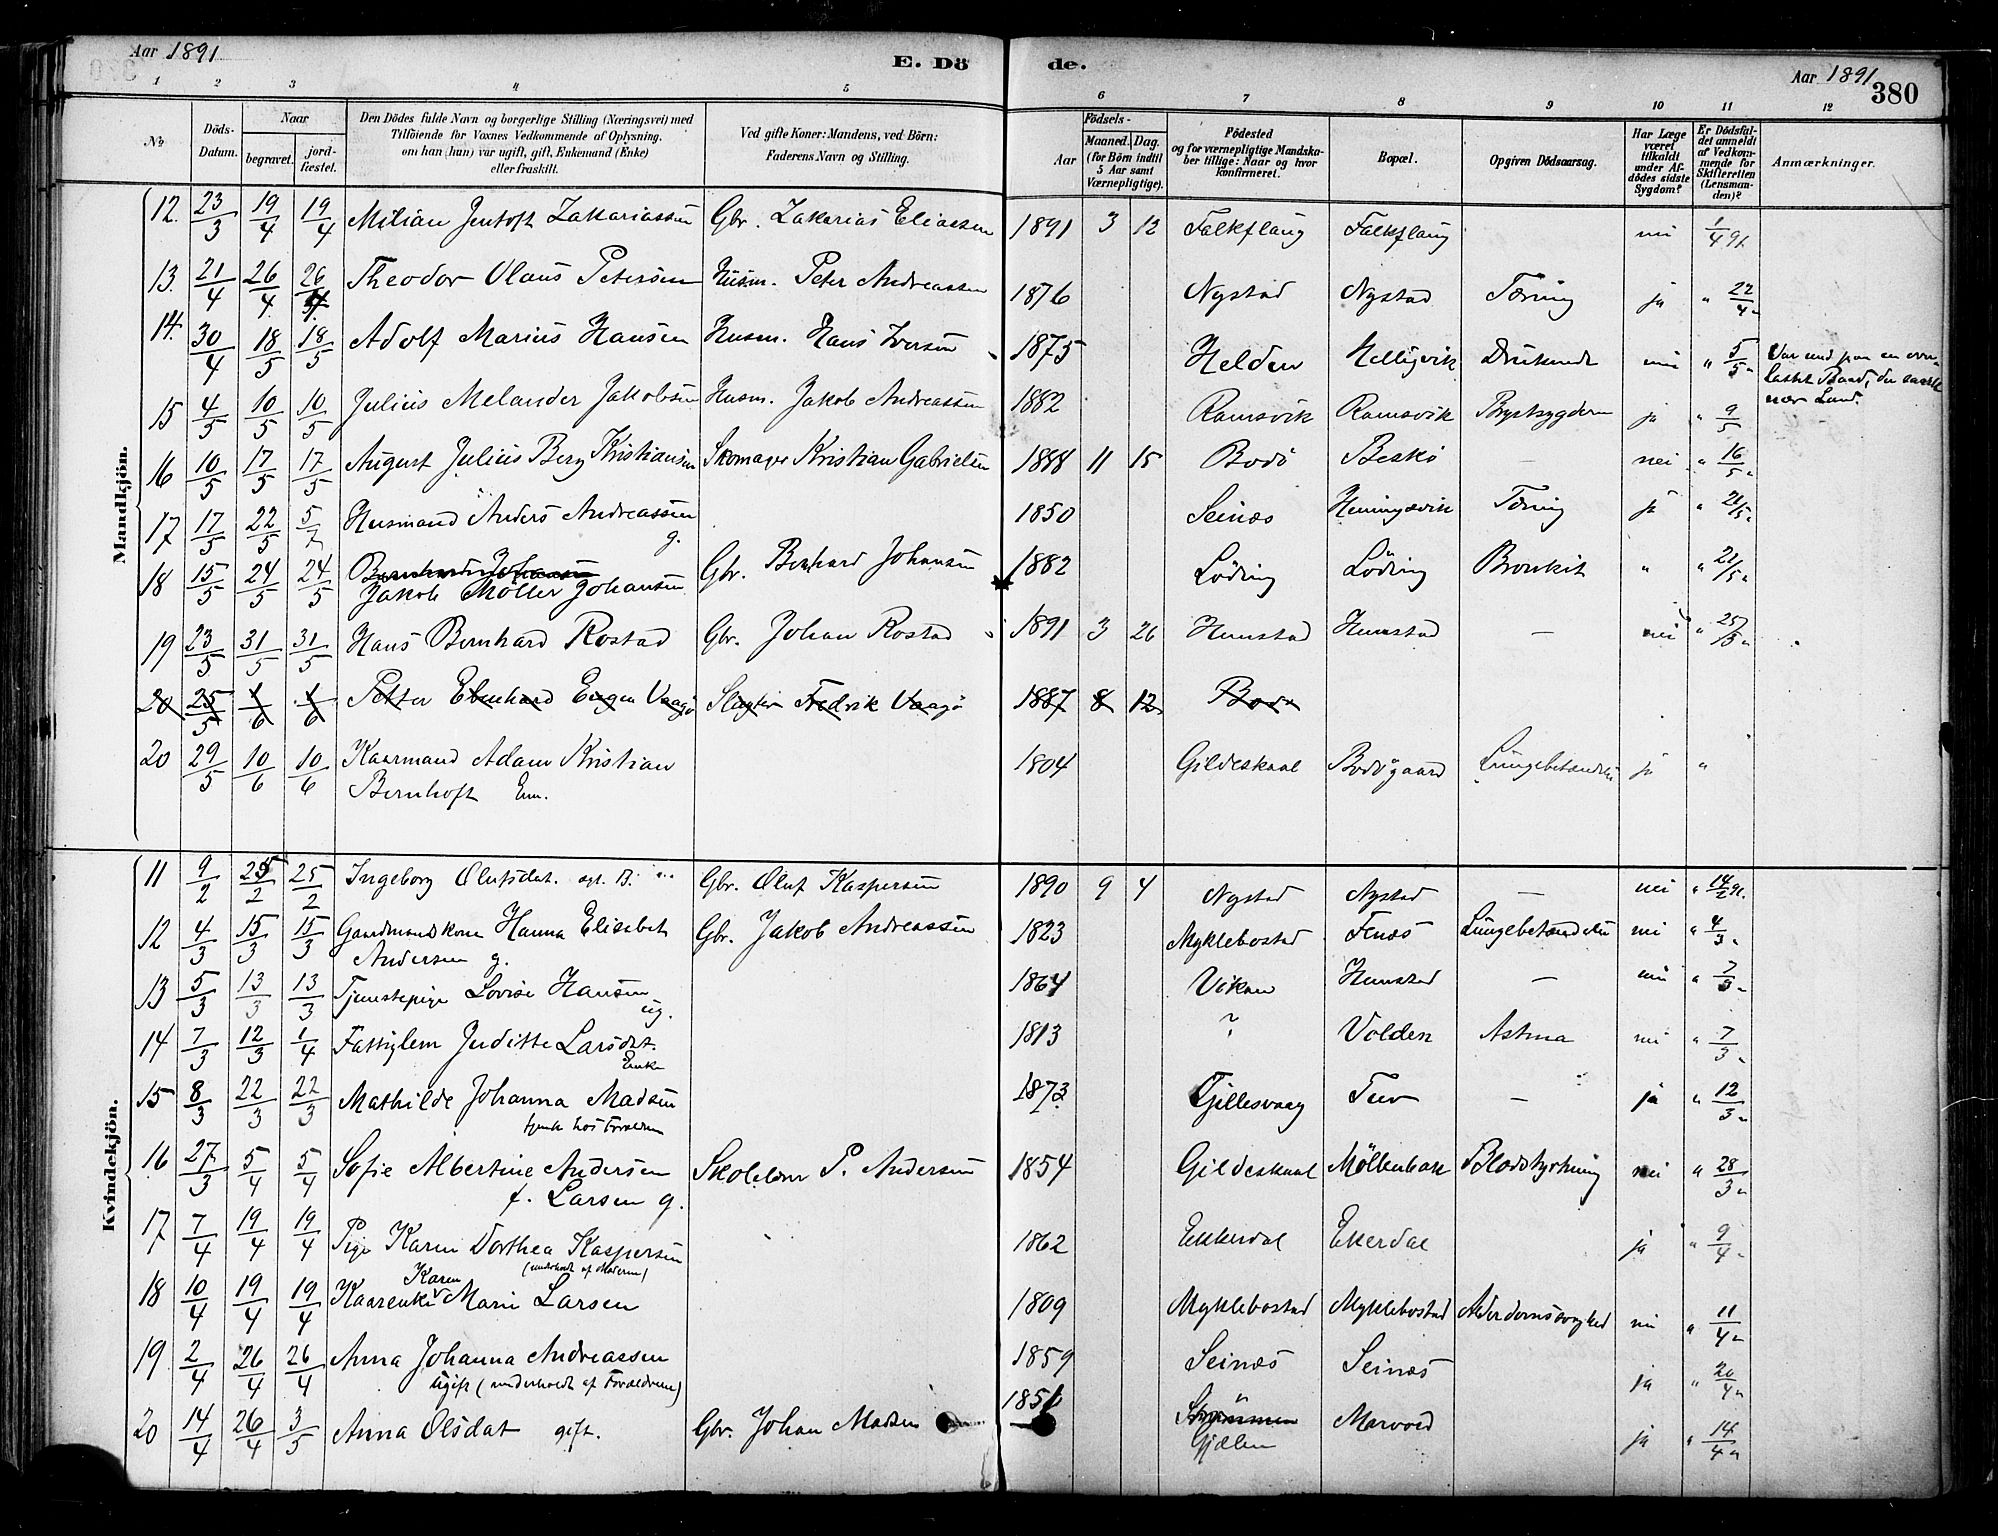 Aar 1891
E. Dö de.
Aar 1891
380
1 2 3 4 5 6 7 8 9 10 11 12
No.
Döds-Datum.
Naar
begravet.
jord-fæstet.
Den Dödes fulde Navn og borgerlige Stilling (Næringsvei) med
Tilföiende for Voxnes Vedkommende af Oplysning,
om han (hun) var ugift, gift, Enkemand (Enke)
eller fraskilt.
Ved gifte Koner: Mandens, ved Börn:
Faderens Navn og Stilling.
Födsels-
Aar
Maaned. Dag.
(for Börn indtil
5 Aar samt
Værnepligtige).
Födested
og for værnepligtige Mandska-
ber tillige: Naar og hvor
konfirmeret.
Bopæl.
Opgiven Dödsaarsag.
Har Læge
været
tilkaldt
under Af-
dödes sidste
Sygdom?
Er Dödsfal-
det anmeldt
af Vedkom-
mende for
Skifteretten
(Lensman-
den)?
Anmærkninger.
Mandkjön.
12. 23/3 19/4 19/4 Milian Jentoft Zakariassen Gbr. Zakarias Eliassen 1891 3 12 Falkflaug Falkflaug nei 1/4 91.
13. 21/4 26/4 26/4 Theodor Olaus Petersen Husm. Peter Andreassen 1876 Nystad Nystad Tæring ja " 22/4 "
14. 30/4 18/5 18/5 Adolf Marius Hansen Husm. Hans Iversen 1875 Helden Helligvik Druknede nei " 5/5 " Var med paa en over-
lastet Baad, der sank
nær Land.
15 4/5 10/5 10/5 Julius Melander Jakobsen Husm. Jakob Andreassen 1882 Ramsvik Ramsvik Brystsygdom ja " 9/5
16 10/5 17/5 17/5 August Julius Berg Kristiansen Skomager Kristian Gabrielsen 1888 11 15 Bodö Beskö — nei " 16/5 "
17 17/5 22/5 5/7 Husmand Anders Andreassen g. 1850 Seinæs Heningsvik Tæring ja " 21/5 "
18 15/5 24/5 24/5 Bernhard Johansen
Jakob Möller Johansen Gbr. Bernhard Johansen 1882 Löding Löding Bronkit " " 21/5 "
19 23/5 31/5 31/5 Hans Bernhard Rostad Gbr. Johan Rostad 1891 3 26 Hunstad Hunstad — nei " 25/5 "
20 25/5 1/6 1/6 Petter Edvard Eugen Vaagö Fredrik Vaagö 1887 8 12 Bodö
20 29/5 10/6 10/6 Kaarmand Adam Kristian
Bernhoft Em. 1804 Gildeskaal Bodögaard Lungebetændelse ja "
Kvindekjön.
11 9/2 25/2 25/2 Ingeborg Olufsdat. Gbr. Oluf Kaspersen 1890 9 4 Nystad Nystad — nei " 14/2 91.
12 4/3 15/3 15/3 Gaardmandskone Hanna Elisabet
Andersen g. Gbr. Jakob Andreassen 1823 Myklebostad Fenæs Lungebetændelse nei " 4/3 "
13 5/3 13/3 13/3 Tjenestepige Lovise Hansen ug. 1864 Vikan Hunstad — nei " 7/3 "
14 7/3 12/3 1/4 Fattiglem Juditte Larsdat.
Enke 1813 ? Volden Astma nei " 7/3 "
15 8/3 22/3 22/3 Mathilde Johanna Madsen
hos Forældrene 1873 Gillesvaag Tuv — ja " 12/3 "
16 27/3 5/4 5/4 Sofie Albertine Andersen
f. Larsen g. Skolelærer P. Andersen 1854 Gildeskaal Möllenbak Blodstyrtning nei " 28/3 "
17 7/4 19/4 19/4 Pige Karen Dorthea Kaspersen
(underholdt af Moderen) 1862 Ekkerdal Ekerdal ja " 9/4 "
18 10/4 19/4 19/4 Kaarenke Karen Marie Larsen 1809 Myklebostad Myklebostad Alderdomssvaghed nei " 11/4 "
19 2/4 26/4 26/4 Anna Johanna Andreassen
ugift (underholdt af Forældrene) 1859 Seinæs Seinæs ja " 20/4 "
20 14/4 26/4 3/5 Anna Olsdat gift. Gbr. Johan Madsen 1851 Strömmen
Gjælen Marvold ja " 14/4 "